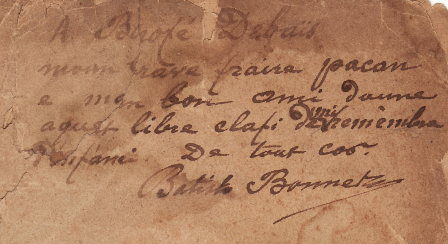 A Biroté Debaïs
moun brave fraire pacan
e mon bon ami doune
aquest libre clafi de mi remembre
d'enfanci. De tout cor.
Batisto Bonnet